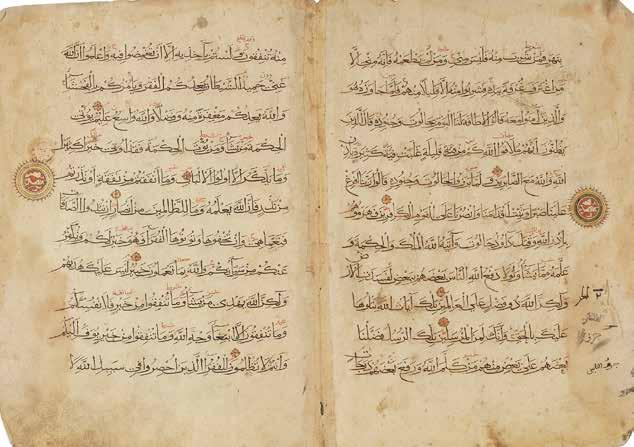 بنهر فمن شرب منه فليس مني ومن لم يطعمه فانه مني الا
من اغترف غرفة بيده فشربوا منه الا قليلا منهم فلما جاوزه هو
والذين امنوا معه قالوا لا طاقة لنا اليوم بجالوت وجنوده قال الذين
يظنون انهم ملاقوا الله كم من فئة قليلة غلبت فئة كثيرة باذن
الله والله مع الصابرين ولما برزوا لجالوت وجنوده قالوا ربنا افرغ
علينا صبرا وثبت اقدامنا وانصرنا على القوم الكافرين فهزموهم
باذن الله وقتل داود جالوت وآتاه الله الملك والحكمة و
علمه مما يشاء ولولا دفع الله الناس بعضهم ببعض لفسدت الارض
ولكن الله ذو فضل على العالمين تلك آيات الله نتلوها
عليك بالحق وانك لمن المرسلين تلك الرسل فضلنا
بعضهم على بعض منهم من كلم الله ورفع بعضهم درجات
منه تنفقون ولستم بآخذيه الا ان تغمضوا فيه واعلموا ان الله
غني حميد الشيطان يعدكم الفقر ويأمركم بالفحشاء
والله يعدكم مغفرة منه وفضلا والله واسع عليم يؤتي
الحكمة من يشاء ومن يؤت الحكمة فقد اوتي خيرا كثيرا
وما يذكر الا اولوا الالباب وما انفقتم من نفقة او نذرتم
من نذر فان الله يعلمه وما للظالمين من انصار ان تبدوا الصدقات
فنعما هي وان تخفوها وتؤتوها الفقراء فهو خير لكم ويكفر
عنكم من سيئاتكم والله بما تعملون خبير ليس عليك هداهم
ولكن الله يهدي من يشاء وما تنفقوا من خير فلانفسكم
وما تنفقون الا ابتغاء وجه الله وما تنفقوا من خير يوف اليكم
وانتم لا تظلمون للفقراء الذين احصروا في سبيل الله لا